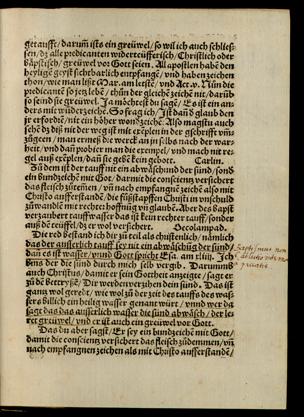 getaufft / darum̄ ists ein greüwel / so wil ich auch schließ-
sen / dz alle predicanten widertöüfferisch / Christlich oder
bäpstisch / greüwel vor Gott seien. All apostlen haben den
heyligē geyst sichtbarlich empfangē / vnd haben zeichen
thon / wie man lißt Mar. am letstē / vnd Act. Nun die
predicantē so jetz lebē / thūn der gleichē zeichē nit / darūb
so seind sie greüwel. Ja möchtest du sagē / Es ist ein an-
ders mit der widerzeichē. So frag ich / Ist dañ d glaub den
jr erfordrē / nit ein höher wonder zeichē. Also magstu auch
sehē dz diß nit der weg ist mit exēplen in der gschrifft vmb
zůgeen / man ermeß die werck an jn selbs nach der war-
heit / vnd dañ probier man die exempel / vnd nach mit re-
gel auß exēplen / dañ sie gebē kein gebott. Carlin.
Zů dem ist der tauff nit ein abwäschung der sünd / sond
ein bundzeichē mit Got / darmit die conscientz versichert
das fleisch zů temmen / vñ nach empfangnē zeichē also mit
Christo aufferstandē / die fůßstapffen Christi in vnschuld
zů wandlē mit rechter hoffnūg vñ glaubē. Aber des bapst
verzaubert tauffwasser das ist kein rechter tauff / sonder
auß dē teüffel / dz er wol versichert. Oecolampad.
Die wyl bestand ich dir zů teil als christenlich / nämlich
das der ausserlich tauff sey nit ein abwäschūg der sünd /
dañ es ist wasser / vnnd Gott spricht Esa. am xliij. Jch
bins der die sünd durch mich selb vergib. Darumm
auch Christus / damit er sein Gottheit anzeigte / sagt er
zů dē bettryßē / Dir werden verzihen dein sünd. Das ist
ganz wol geredt / wie wol zů der zeit des tauffs das was-
sers billich ein heilig wasser genant würt / vnnd wer da
sagt das das ausserlich wasser die sünd abwäsch / der le-
ret greüwel / vnd er ist auch ein greüwel vor Gott.
Das du aber sagst / Er sey ein bundzeichē mit Gott /
damit die conscientz versichert das fleisch zůdemmen / vñ
nach empfangnen zeichen als mit Christo aufferstandē /